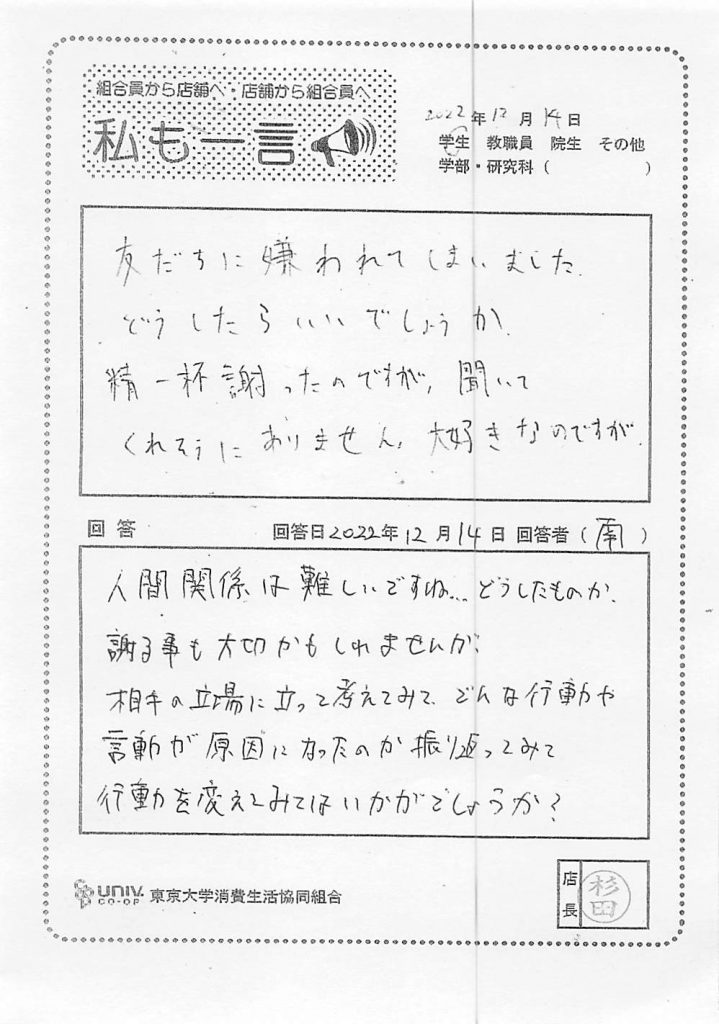 組合員から店舗へ・店舗から組合員へ
私も一言
2022年12月14日
学生 教職員 院生 その他
学部・研究科（ ）
友だちに嫌われてしまいました.
どうしたらいいでしょうか.
精一杯謝ったのですが, 聞いて
くれそうにありません, 大好きなのですが.
回答 回答日2022年12月14日 回答者（南）
人間関係は難しいですね... どうしたものか.
謝る事も大切かもしれませんが.
相手の立場に立って考えてみて、どんな行動や
言動が原因になったのか振り返ってみて
行動を変えてみてはいかがでしょうか？
UNIV. CO-OP 東京大学消費生活協同組合
店長 杉田